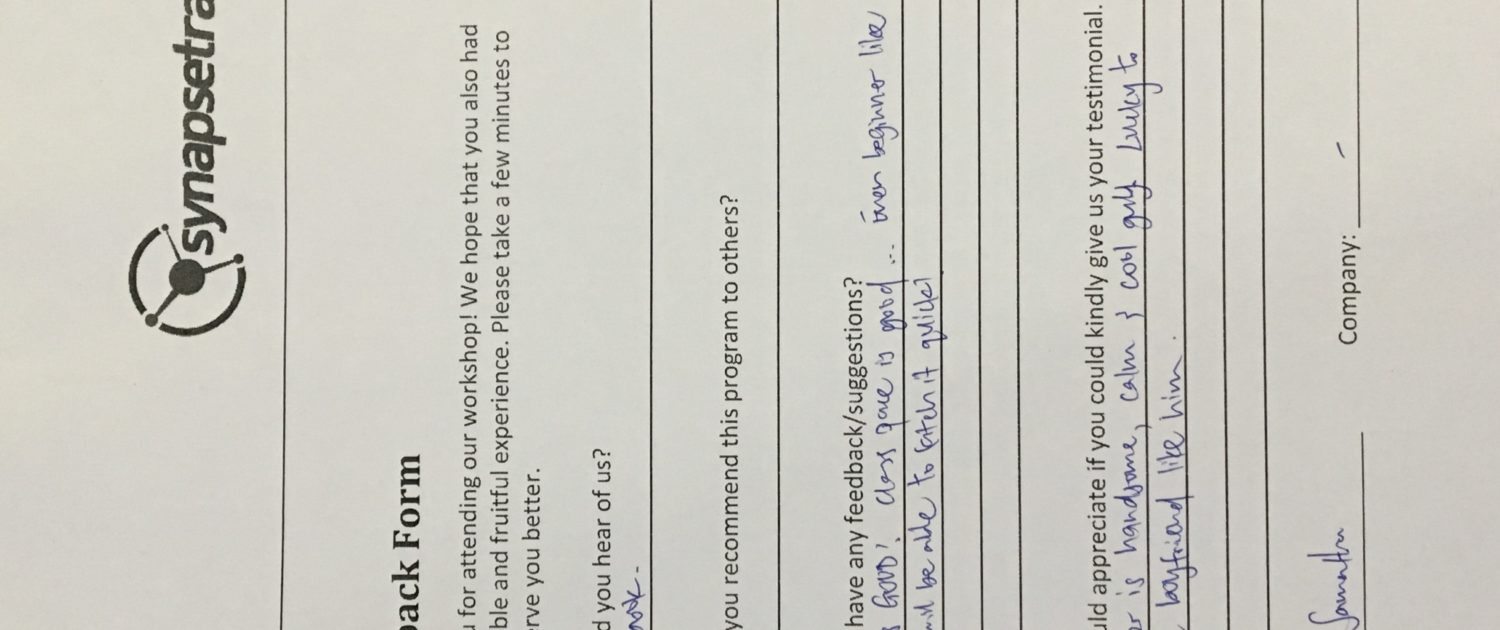 synapsetra
back Form
u for attending our workshop! We hope that you also had
ble and fruitful experience. Please take a few minutes to
erve you better.
d you hear of us?
ook.
you recommend this program to others?
have any feedback/suggestions?
GOOD! Class pace is good ... even beginner like
will be able to catch it quickl
uld appreciate if you could kindly give us your testimonial.
er is handsome, calm & cool guy. Lucky to
boyfriend like him.
Samantha Company: -